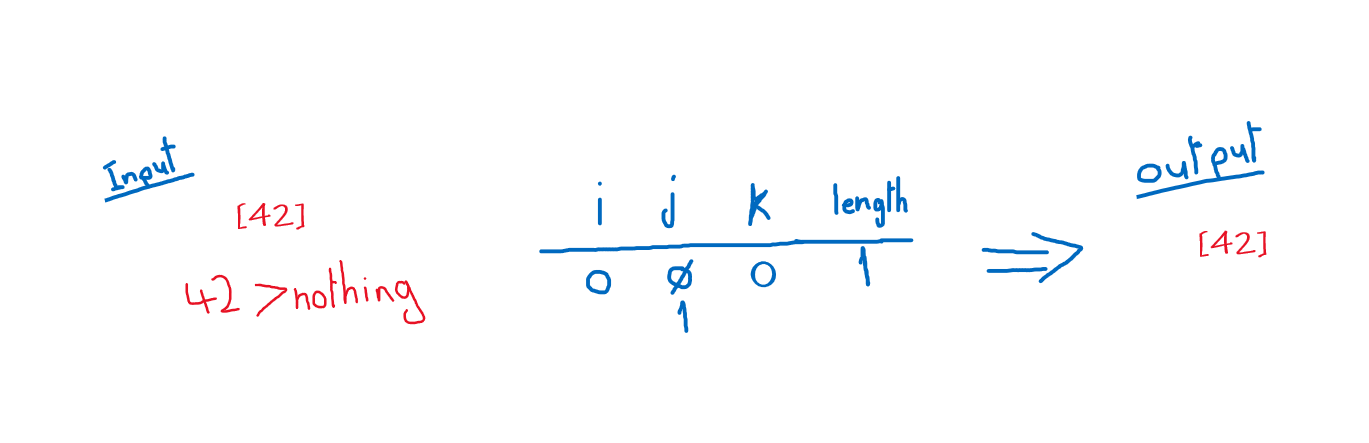 Input
[42]
42 > nothing
i j k length
0 0 0 1
1
output
[42]